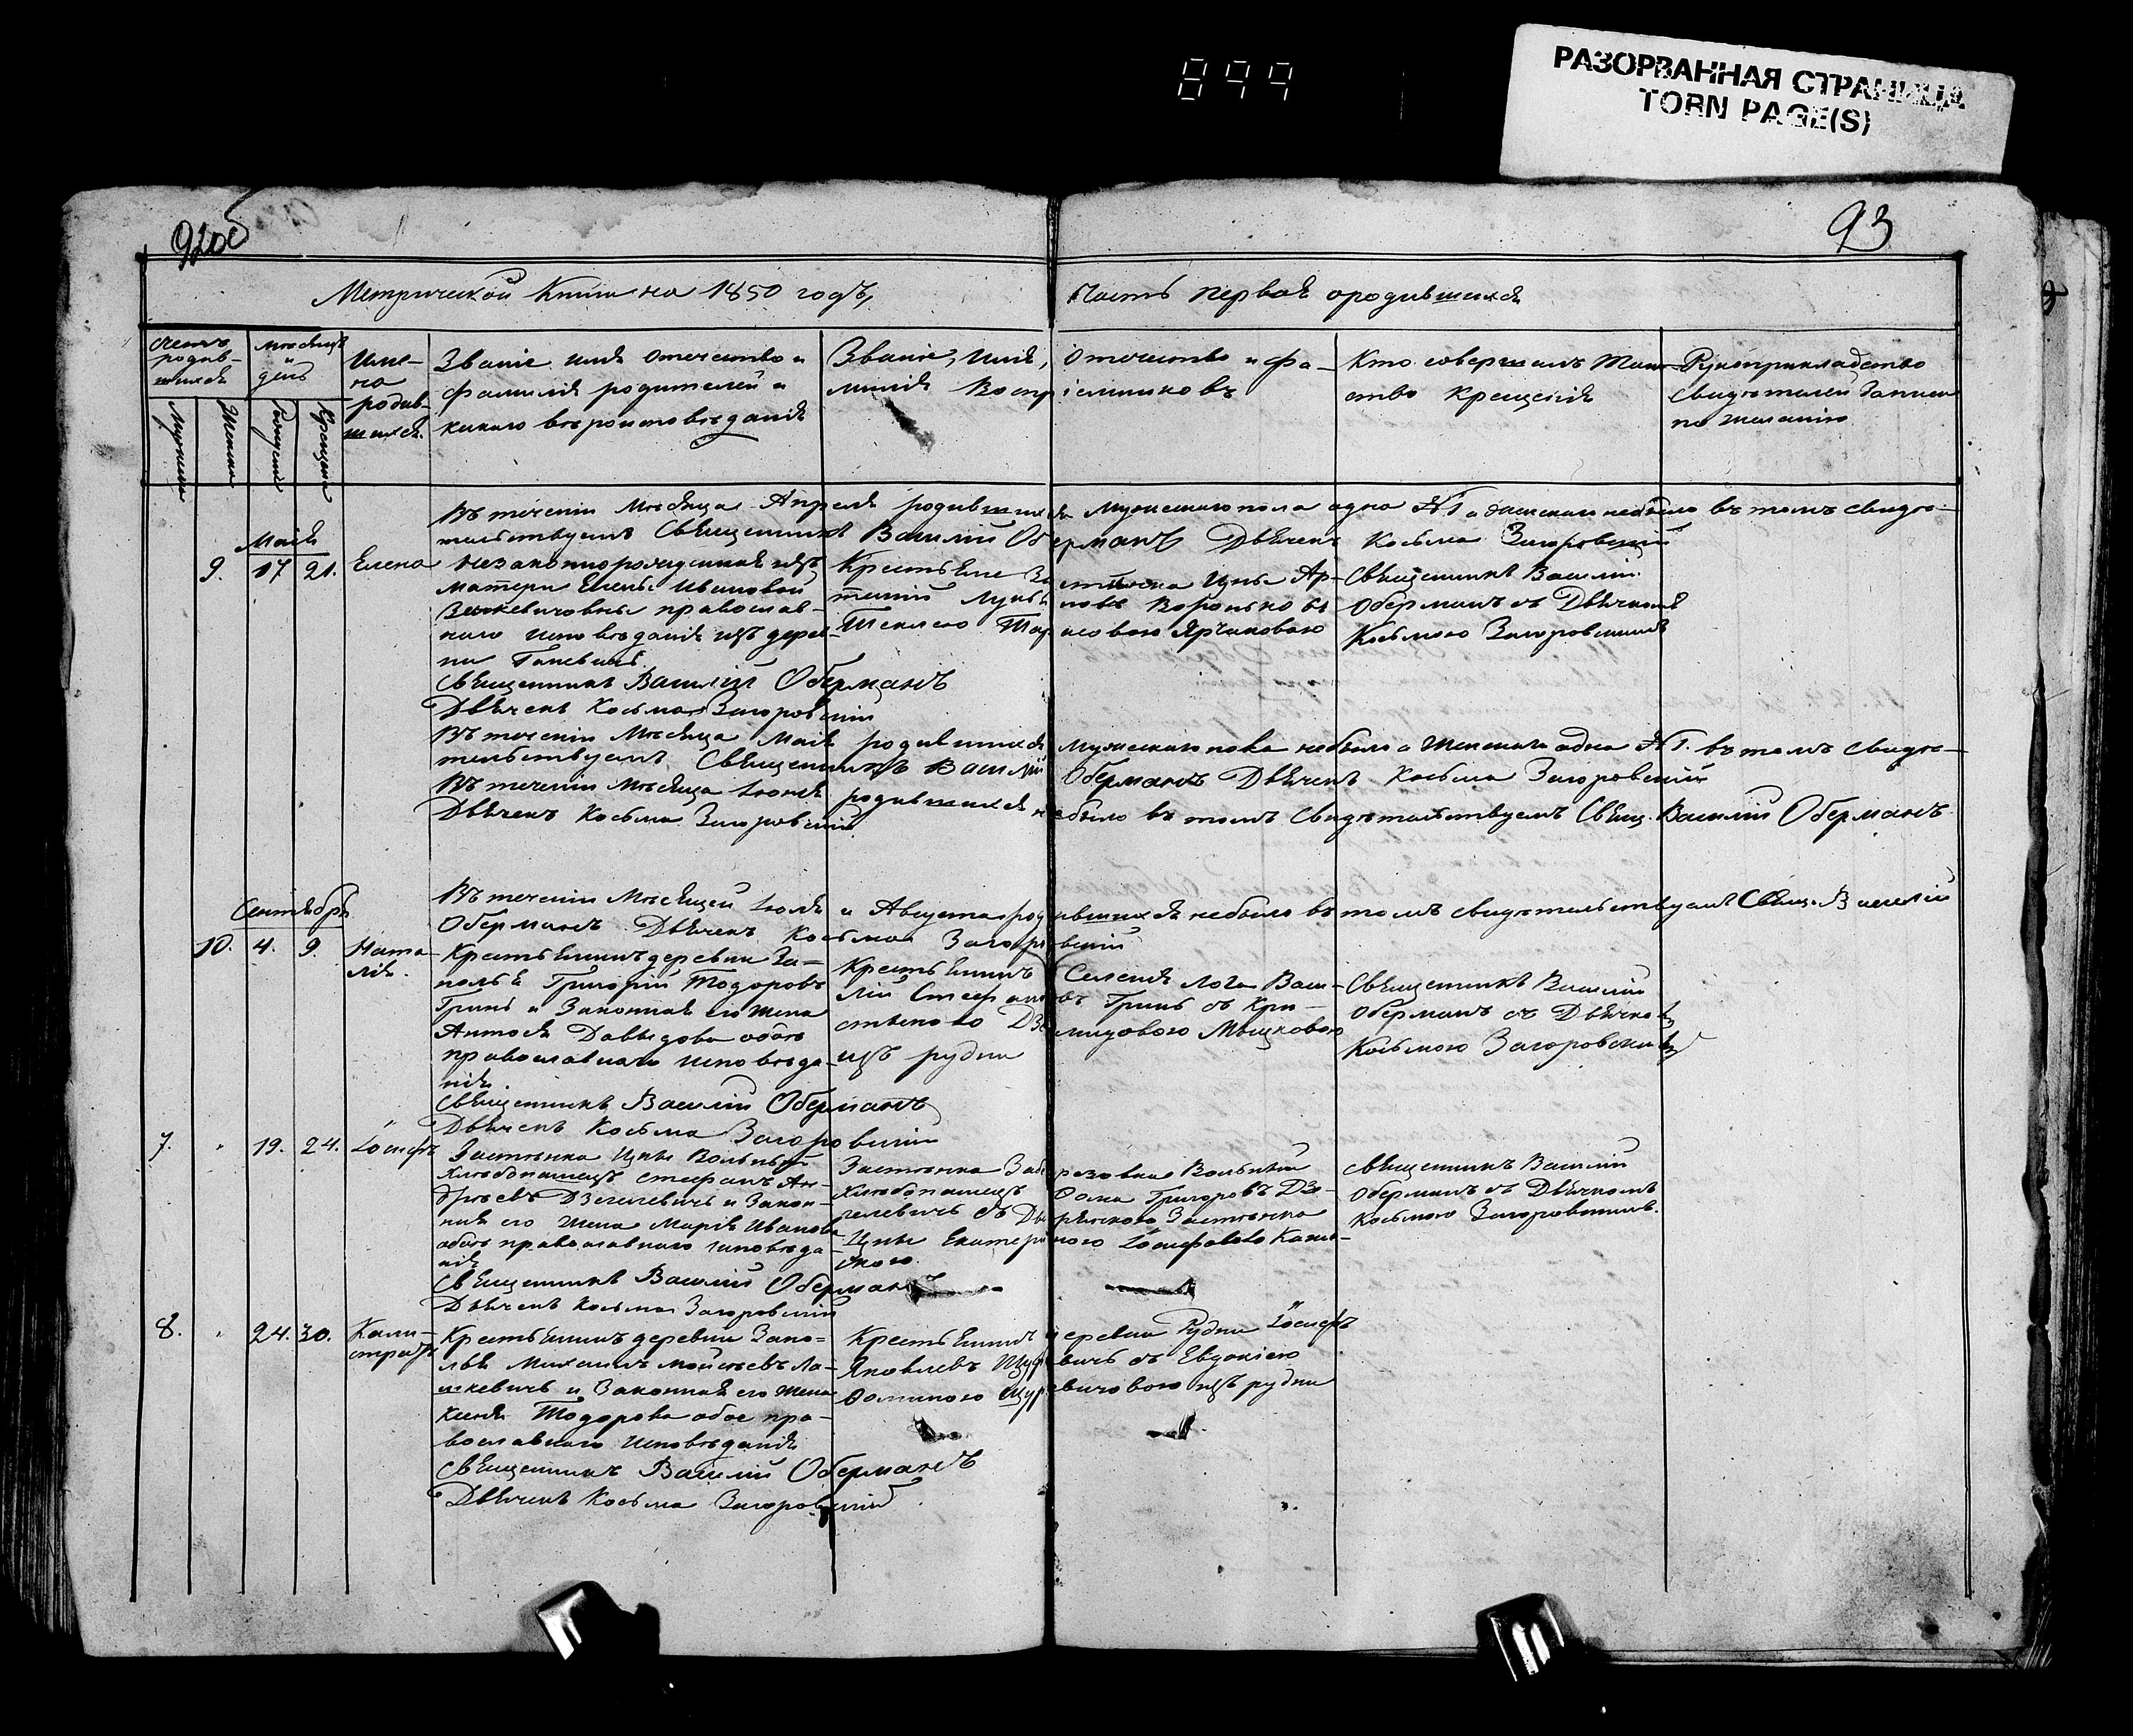 899
РАЗОРВАННАЯ СТРАНИЦА
TORN PAGE(S)
92об
93
Метрической Книги на 1850 годъ,
Часть первая о родившихся
Счетъ родив-
шихся
Мужеска
Женска
Мѣсяцъ
и
день
Рожденія
Крещенія
Име-
на
родив-
шихся.
Званіе имя отчество и
фамилія родителей и
какого вѣроисповѣданія
Званіе, Имя, отчество и фа-
милія Воспріемниковъ
Кто совершалъ Таин-
ство Крещенія
Рукоприкладство
свидѣтелей записи
по желанію
Въ теченіи Мѣсяца Апреля родившихся Мужескаго пола одна №1 а женскаго небыло въ томъ свидѣ-
тельствуемъ Священникъ Василій Оберманъ Дьячекъ Косьма Загоровскій
Маія
9. 17 21. Елена
Незаконнорожденная изъ
матери Елены Ивановой
православ-
наго исповѣданія изъ дерев-
ни
Священникъ Василій Оберманъ
Дьячекъ Косьма Загоровскій
Крестьяне застѣнка Цны
Теклею
Священникъ Василій
Оберманъ съ Дьячкомъ
Косьмою Загоровскимъ
Въ теченіи Мѣсяца Маія родившихся Мужескаго пола небыло а Женскаго одна №1. въ томъ свидѣ-
тельствуемъ Священникъ Василій Оберманъ Дьячекъ Косьма Загоровскій
Въ теченіи Мѣсяца Іюня родившихся небыло въ томъ Свидѣтельствуемъ Свящ. Василій Оберманъ
Дьячекъ Косьма Загоровскій
Въ теченіи Мѣсяцей Іюля и Августа родившихся небыло въ томъ свидѣтельствуемъ Свящ. Василій
Оберманъ Дьячекъ Косьма Загоровскій
Сентябрь
10. 4. 9. Ната-
лія.
Крестьянинъ деревни За-
полья Григорій Тодоровъ
Гринь и Законная его жена
Антося Давыдова обое
православнаго исповѣда-
нія.
Священникъ Василій Оберманъ
Дьячекъ Косьма Загоровскій
Крестьянинъ Селенія Лоча Васи-
лій Стефановъ Гринь съ Кри-
стиною Мышковою
изъ рудни
Священникъ Василій
Оберманъ съ Дьячкомъ
Косьмою Загоровскимъ
7. 19. 24. Іосифъ
Застѣнка Цны Вольный
хлѣбопашецъ Стефанъ Ан-
дрѣевъ Дзегелевичъ и Закон-
ная его Жена Марія Иванова
обое православнаго исповѣда-
нія
Священникъ Василій Оберманъ
Дьячекъ Косьма Загоровскій
Застѣнка Вольный
хлѣбопашецъ Фома Григоровъ Дзе-
гелевичъ съ застѣнка
Цны Екатериною Іосифовою
Священникъ Василій
Оберманъ съ Дьячкомъ
Косьмою Загоровскимъ.
8. 24. 30. Кали-
стратъ
Крестьянинъ деревни Запо-
лья Михаилъ Мойсѣевъ Ла-
шкевичъ и Законная его жена
Тодорова обое пра-
вославнаго исповѣданія
Священникъ Василій Оберманъ
Дьячекъ Косьма Загоровскій
Крестьянинъ деревни Рудни Іосифъ
Яковлевъ съ Евдокіею
Фоминою изъ рудни